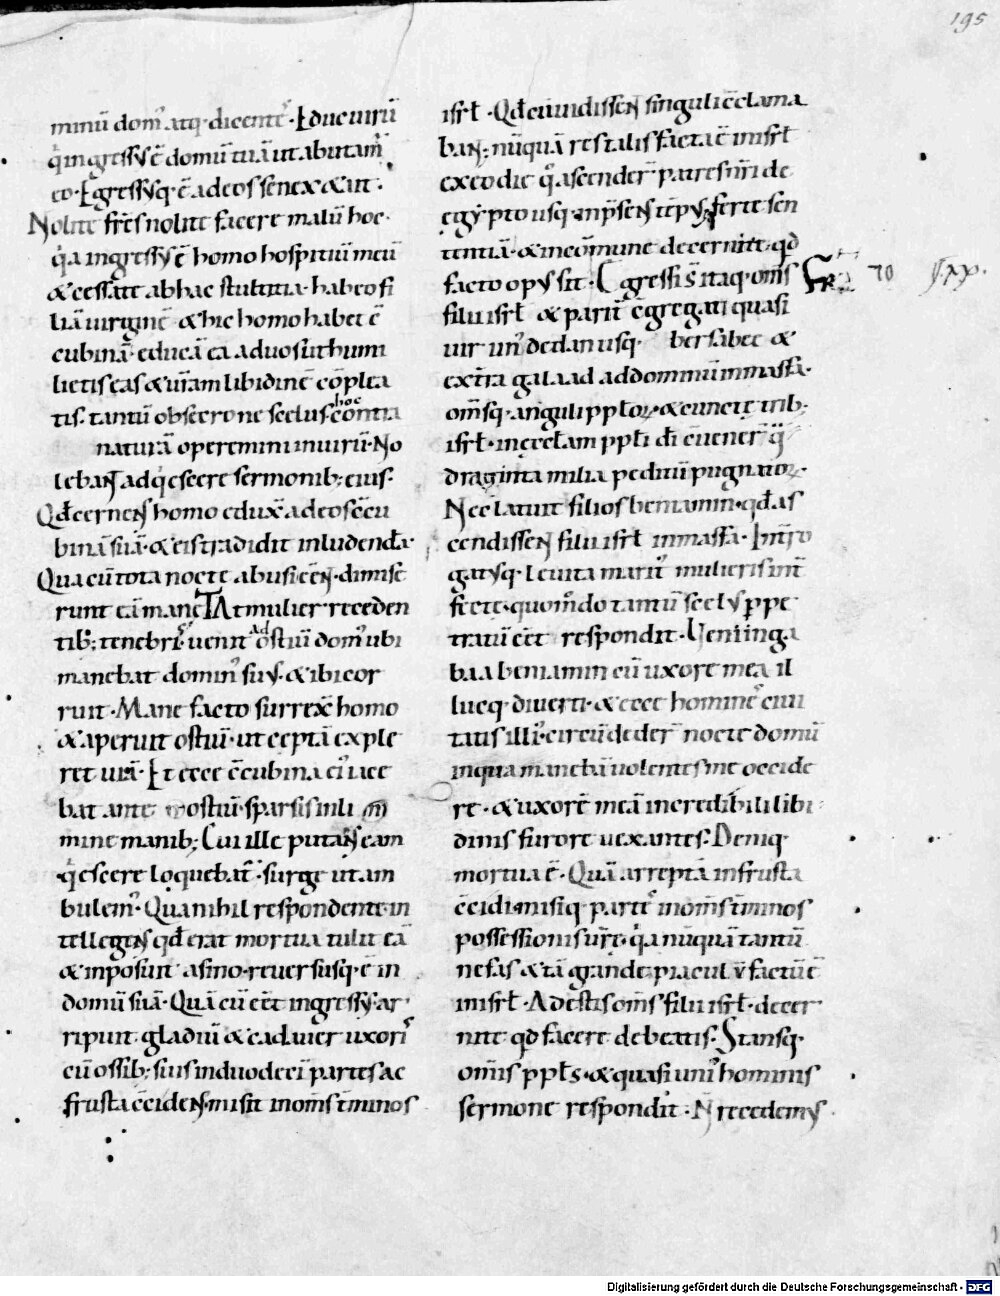 195
minū dom' atq· dicentˢ· Educ uirū
q̇ ingressus ē domū tuā ut abutam̄
eo· Egressusq· ē ad eos senex & ait·
Nolite frēs nolite facere malū hoc·
q̇a ingressus ē homo hospitiū meū
& cessate ab hac stultitia· habeo fi
liā uirginē & hic homo habet ̄c
cubinā· educā ea ad uos ut humi
lietis eas & ur̄am libidinē cōplea
tis· tantū obsecro ne scelus hoc contra
naturā operemini in uirū· No
lebant adq̇escere sermonib; eius·
Qđ cernens homo edux̄ ad eos ̄ccu
binā suā· & eis tradidit inludendā·
Qua cū tota nocte abusi eēn̄· dimise
runt eā mane At mulier receden
tib; tenebris uenit ad ostiū dom' ubi
manebat domin' suus· & ibi cor
ruit· Mane facto surrex̄ homo
& aperuit ostiū· ut ceptā exple
ret uiā· Et ecce ̄ccubina ei' iace
bat ante ostiū· sparsis in li
mine manib; Cui ille putans eam
q̇escere loquebat̄· surge ut am
bulem'· Qua nihil respondente· in
tellegens qđ erat mortua tulit eā
& inposuit asino· reuersusq· ē in
domū suā· Quā cū eēt ingressus· ar
ripuit gladiū & cadauer uxoris
cū ossib; suis in duodecī partes ac
frusta ̄ccidens· misit in om̄s t̄minos
isrł· Qđ cū uidissent singuli ̄cclama
bant· nūquā res talis facta ē in isrł
ex eo die q̊ ascender̄ patres nr̄i de
egypto usq· in p̄sens tēpus· ferte sen
tentiā· & in cōmune decernite· qđ
facto opus sit· Egressi s̄ itaq· om̄s
filii isrł & parit̄ ̄cgregati quasi
uir un' de dan usq· bersabee &
ex t̄ra galaad ad dominū in massa·
om̄sq· anguli pp̄lor̄· & cuncte trib;
isrł· in ecclam pp̄li dī ̄cuener̄ q̄
draginta milia peditū pugnator̄·
Nec latuit filios beniamin· qđ as
cendissent filii isrł in massa· Int̄ro
gatusq· leuita marit' mulieris int̄
fecte· quom̊do tantū scelus ppe
tratū eēt respondit· Ueni in ga
baa beniamin cū uxore mea il
lucq· diuerti· & ecce homines ciui
tatis illi' circūdeder̄ nocte domū
in qua manebā uolentes me occide
re· & uxorē meā incredibili libi
dinis furore uexantes· Deniq·
mortua ē· Quā arreptā in frusta
̄ccidi· misiq· partes in om̄s t̄minos
possessionis ur̄e· q̇a nūquā tantū
nefas & tā grande piaculū factū ē
in isrł· Adestis om̄s filii isrł· decer
nite qđ facere debeatis· Stansq·
om̄is pp̄ls· & quasi uni' hominis
sermone respondit· N̄ recedemus
Digitalisierung gefördert durch die Deutsche Forschungsgemeinschaft - DFG